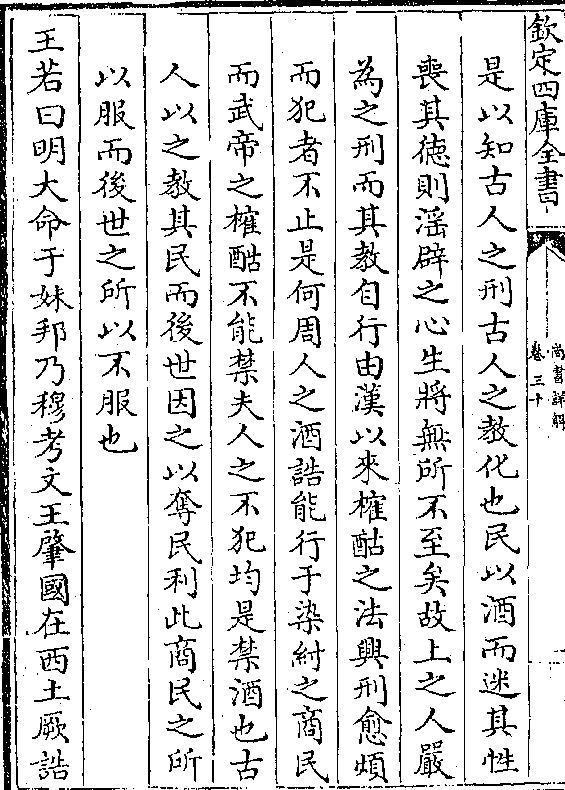 欽定四庫全書
尚書詳解
卷三十
是以知古人之刑古人之教化也民以酒而迷其性
喪其徳則淫辟之心生將無所不至矣故上之人嚴
為之刑而其教自行由漢以來榷酤之法興刑愈煩
而犯者不止是何周人之酒誥能行于染紂之商民
而武帝之榷酤不能禁夫人之不犯均是禁酒也古
人以之教其民而後世因之以奪民利此商民之所
以服而後世之所以不服也
王若曰明大命于妹邦乃穆考文王肇國在西土厥誥